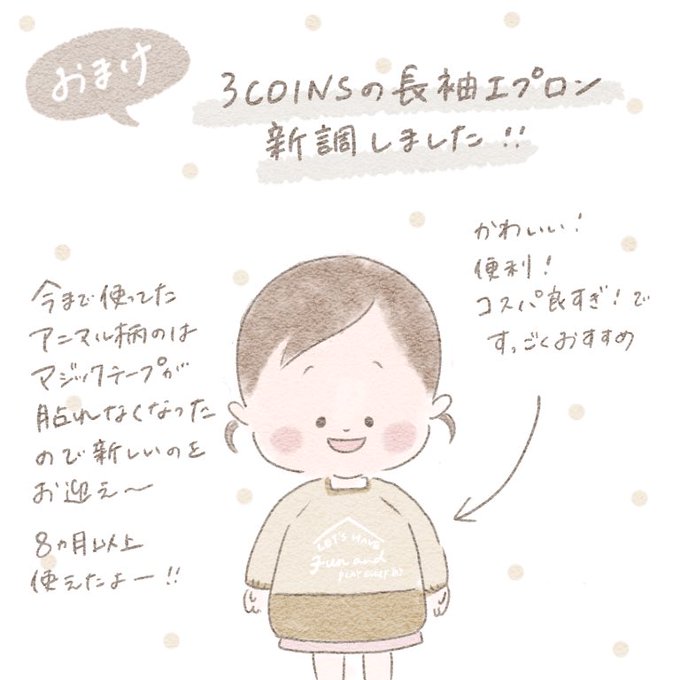 おまけ
3COINSの長袖エプロン
新調しました!!
かわいい!
便利!
コスパ良すぎ!で
すっごくおすすめ
今まで使ってた
アニマル柄のは
マジックテープが
貼れなくなった
ので新しいのを
お迎え〜
8ヵ月以上
使えたよー!!
LET'S HAVE
Fun and
PLAY